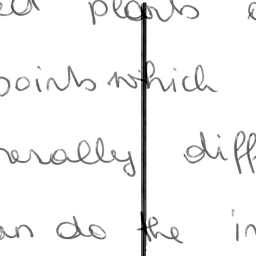 plants
points which
erally diff
an do the in